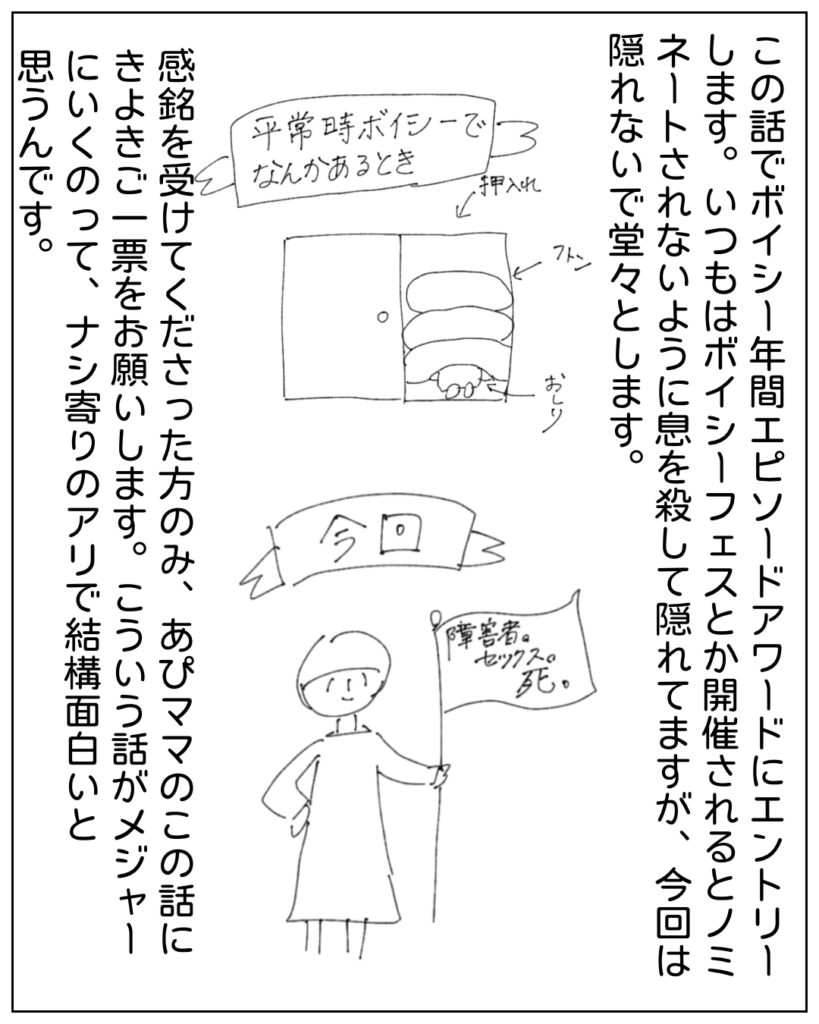 この話でボイシー年間エピソードアワードにエントリー
します。いつもはボイシーフェスとか開催されるとノミ
ネートされないように息を殺して隠れてますが、今回は
隠れないで堂々とします。
平常時ボイシーで
なんかあるとき
押入れ
フトン
おしり
今回
障害者。
セックス。
死。
感銘を受けてくださった方のみ、あぴママのこの話に
きよきご一票をお願いします。こういう話がメジャー
にいくのって、ナシ寄りのアリで結構面白いと
思うんです。